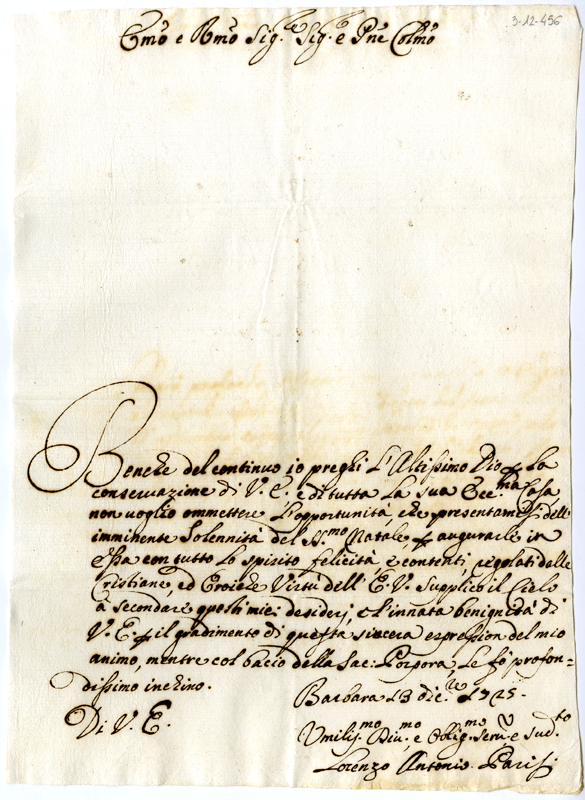 3-12-496
Em͂o e Rm͂o Sig.re Sig.e e Pn͂e Colm͂o
Benche del continuo io preghi L'Altissimo Dio per La
conservazione di V. E. e di tutta La sua Ecc.ma Casa
non voglio ommettere L'opportunità, che presentamisi dell'
imminente Solennità del SS.mo Natale per augurarle in
essa con tutto lo spirito felicità, e contenti regolati dalle
Cristiane, ed Eroiche Virtù dell' E. V. Supplico il Cielo
à secondare questi miei desiderj, e l'innata benignità di
V. E. per il gradimento di questa sincera espression del mio
animo, mentre col bacio della Sac: Porpora, Le fò profon=
dissimo inchino.
Barbara 13 dic.re 1725.
Di V. E.
Umilis.mo Div.mo e Oblig.mo Serv.e e Sud.to
Lorenzo Antonio Parisi